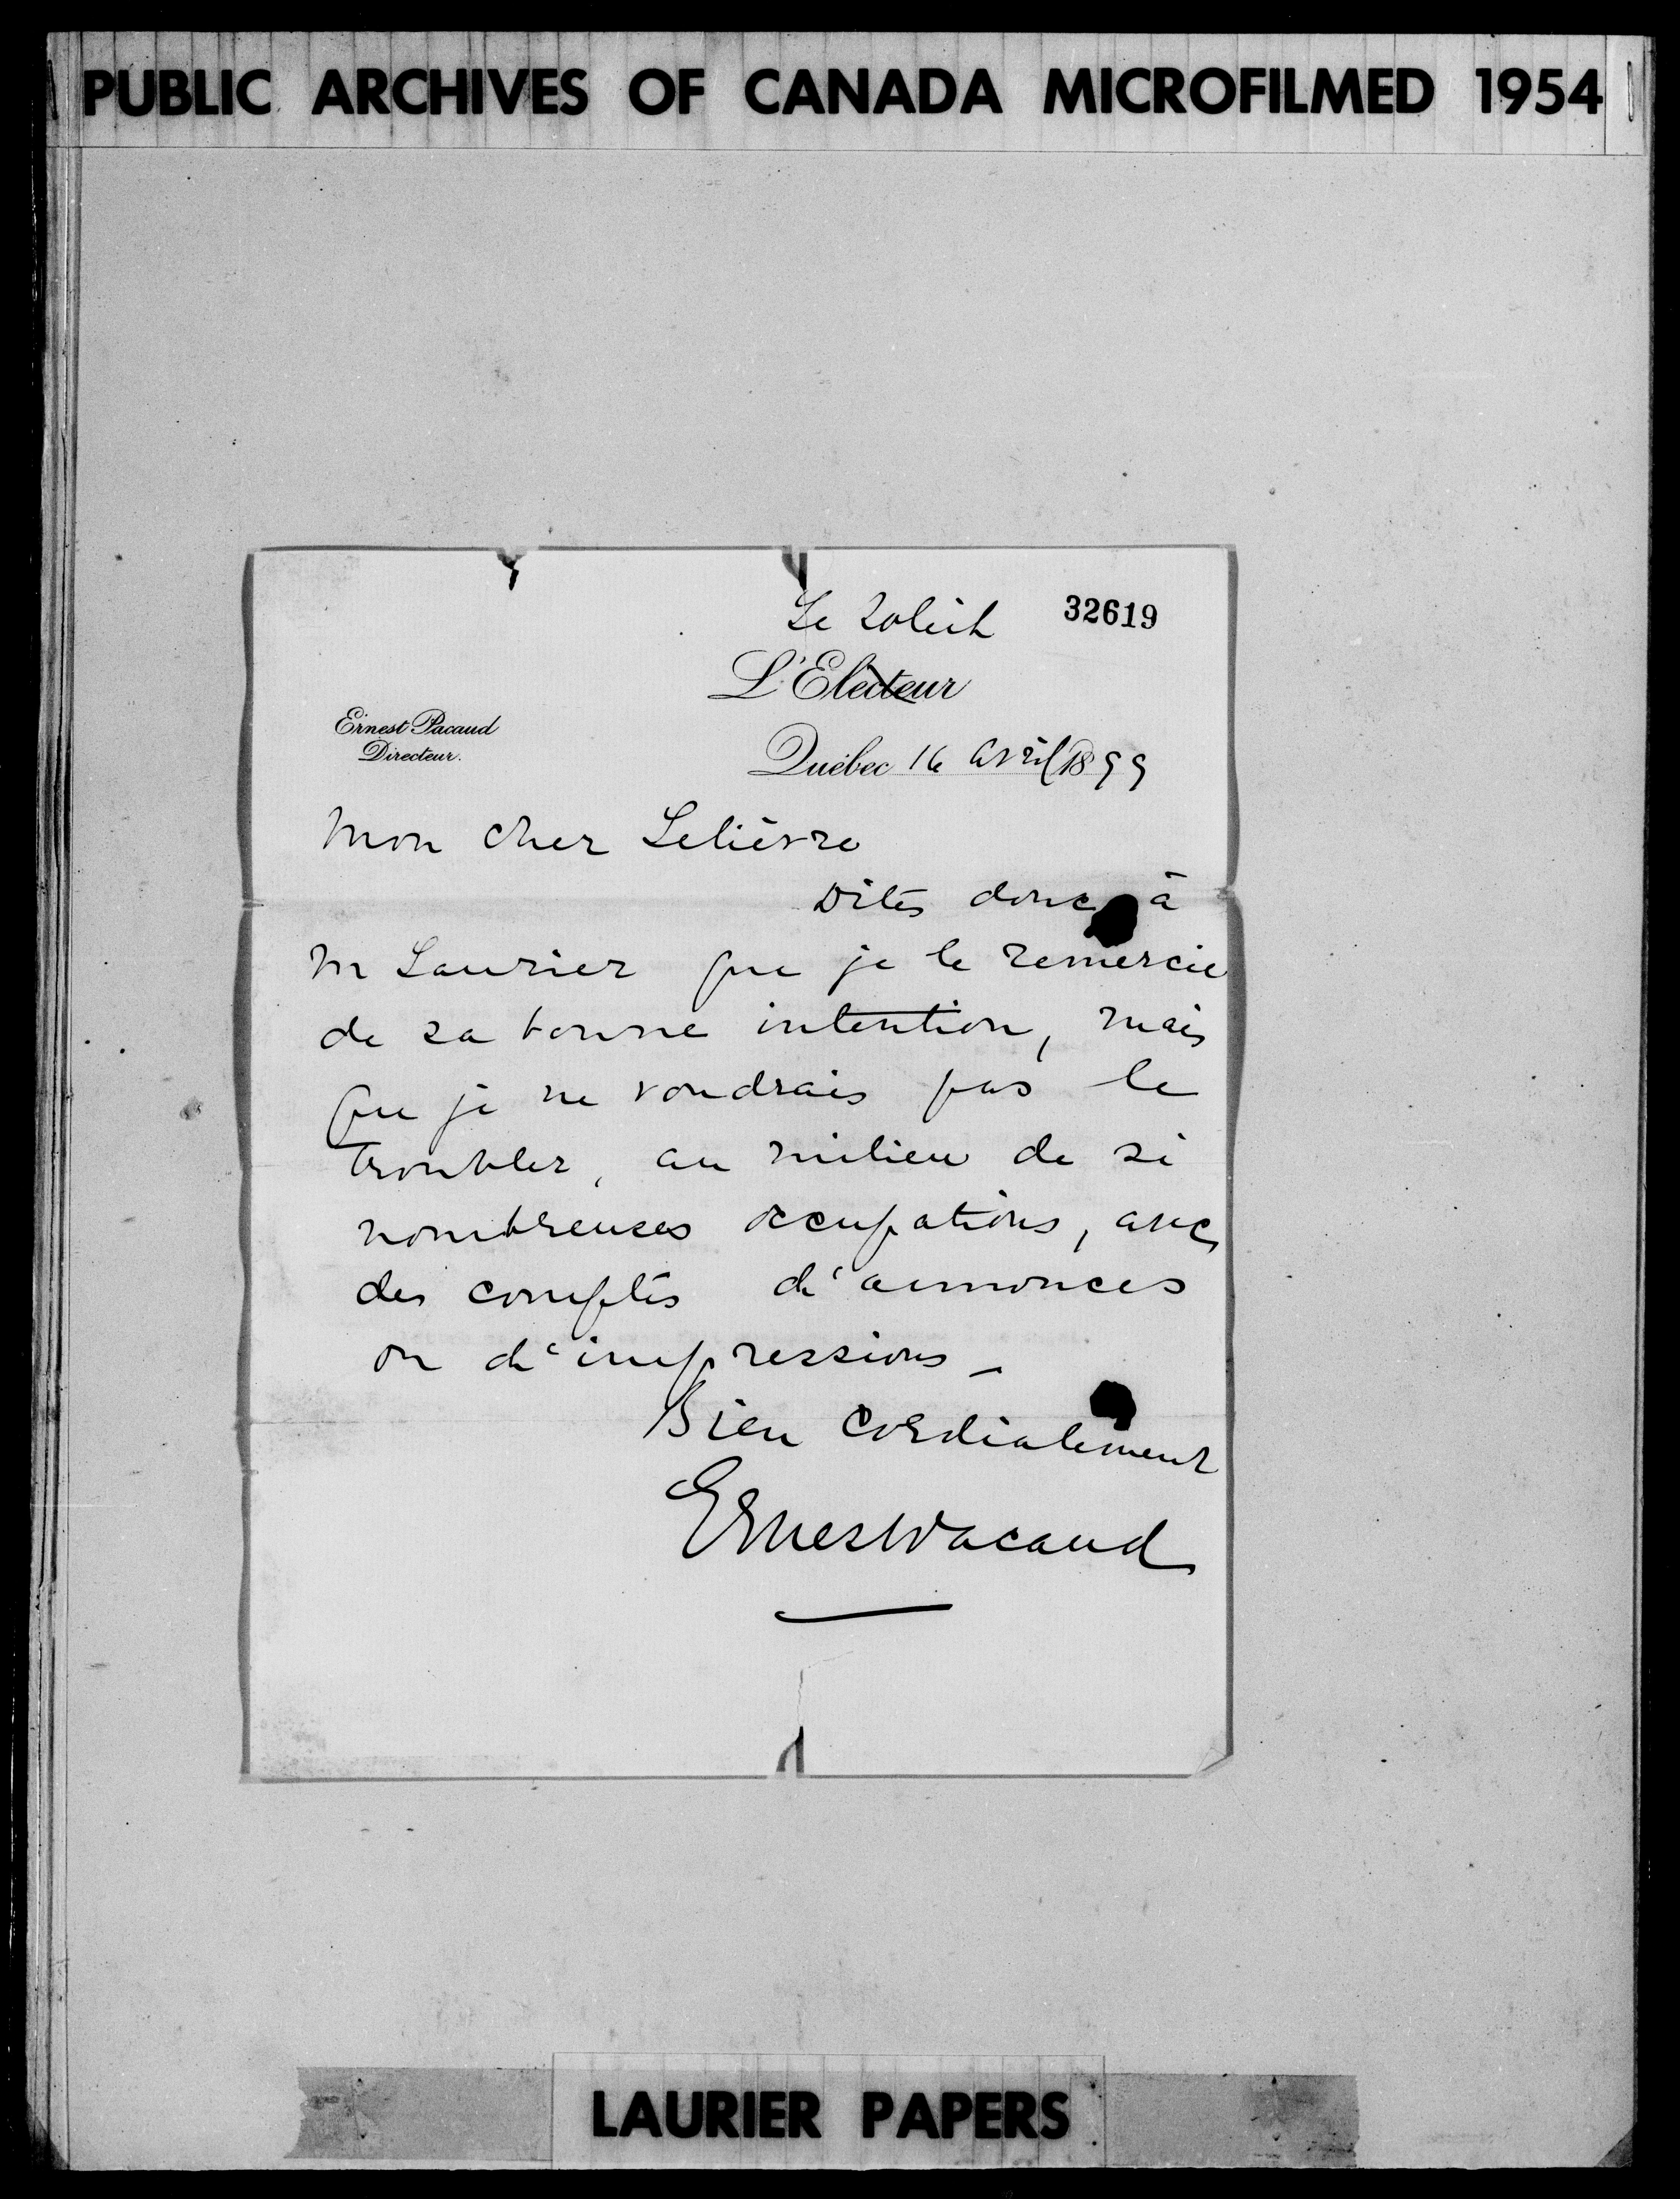 PUBLIC ARCHIVES OF CANADA MICROFILMED 1954
Le Soleil 32619
L'Electeur
Ernest Pacaud
Directeur.
Québec 16 avril 1899
Mon cher Lelièvre
Dites donc à
M Laurier que je le remercie
de sa bonne intention, mais
que je ne voudrais pas le
troubler, au milieu de si
nombreuses occupations, avec
des comptes d'annonces
ou d'impressions_
Bien cordialement
Ernest Pacaud
LAURIER PAPERS